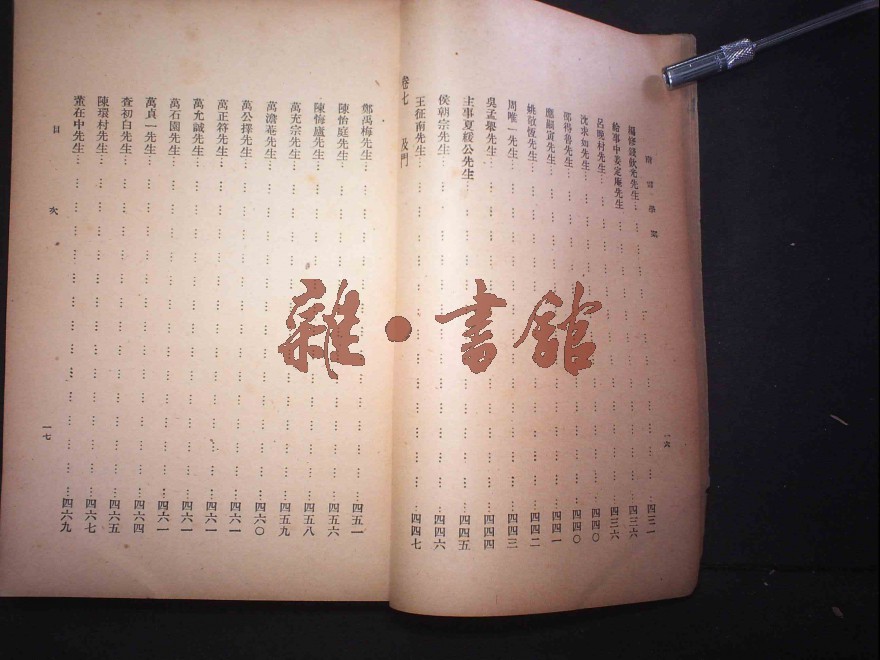 南雷學案
編修錢飲光先生………四三一
給事中姜定庵先生………四三六
呂晚村先生………四三六
沈求如先生………四四〇
邵得魯先生………四四〇
應嗣寅先生………四四一
姚敬恆先生………四四二
周唯一先生………四四三
吳孟舉先生………四四四
主事夏緩公先生………四四五
侯朝宗先生………四四六
王征南先生………四四七
一六
卷七 及門
鄭禹梅先生………四五一
陳怡庭先生………四五六
陳悔廬先生………四五八
萬充宗先生………四五九
萬澹菴先生………四六〇
萬公擇先生………四六一
萬正符先生………四六一
萬允誠先生………四六一
萬石園先生………四六一
萬貞一先生………四六四
查初白先生………四六五
陳環村先生………四六七
董在中先生………四六九
目次
一七
雜·書館